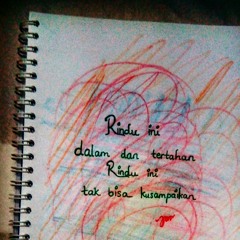 Rindu ini
dalam dan tertahan
Rindu ini
tak bisa kusampaikan